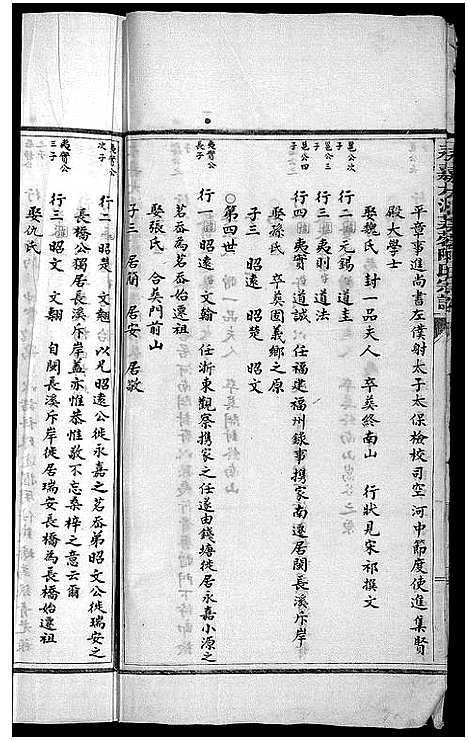 平章事進尚書左僕射太子太保檢校司空河中節度使進集賢
殿大學士
娶魏氏 封一品夫人 卒葬終南山 行狀見宋祁撰文
邕公次子 行二 元錫 道圭
邕公三子 行三 夷則 道法
邕公四子 行四 夷實 道誠 任福建福州錄事携家南遷居閩長溪斥岸
娶孫氏 卒葬固義鄉之原
子三 昭遠 昭楚 昭文
○第四世
夷實公長子 行一 昭遠 文翰 任浙東觀察携家之任遂由錢塘徙居永嘉小源之
茗岙為茗岙始遷祖
娶張氏 合葬門前山
子三 居簡 居安 居敬
夷實公次子 行二 昭楚 文魁 以兄昭遠公徙永嘉之茗岙弟昭文公徙瑞安之
長橋公獨居長溪斥岸蓋亦惟恭惟敬不忘桑梓之意云爾
夷實公三子 行三 昭文 文翱 自閩長溪斥岸徙居瑞安長橋為長橋始遷祖
娶仇氏